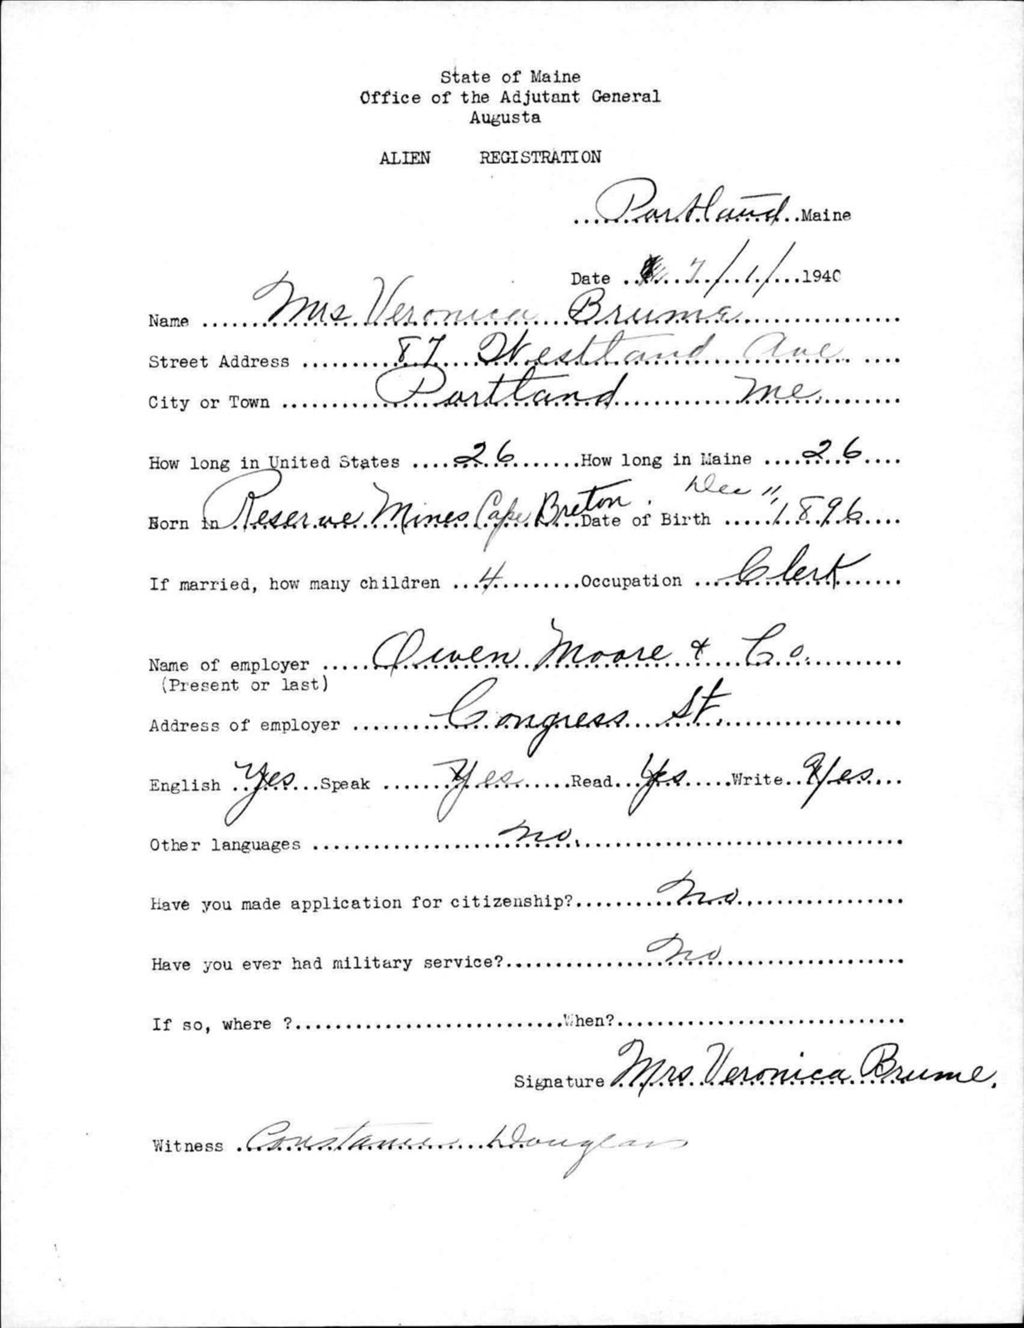 State of Maine
Office of the Adjutant General
Augusta
ALIEN REGISTRATION
...Portland...Maine
Date ...7/1/...1940
Name ...Mrs Veronica Brume...
Street Address ...87 Westland Ave...
City or Town ...Portland Me...
How long in United States ...26...How long in Maine ...26...
Born in Reserve Mines Cape Breton. Date of Birth Dec 11, 1896
If married, how many children ...4...Occupation ...Clerk...
Name of employer ...Owen Moore & Co....
(Present or last)
Address of employer ...Congress St....
English ...Yes...Speak ...Yes...Read...Yes...Write...Yes...
Other languages ...no....
Have you made application for citizenship?...No...
Have you ever had military service?...No...
If so, where ?...When?...
Signature Mrs Veronica Brume.
Witness Constance Douglass